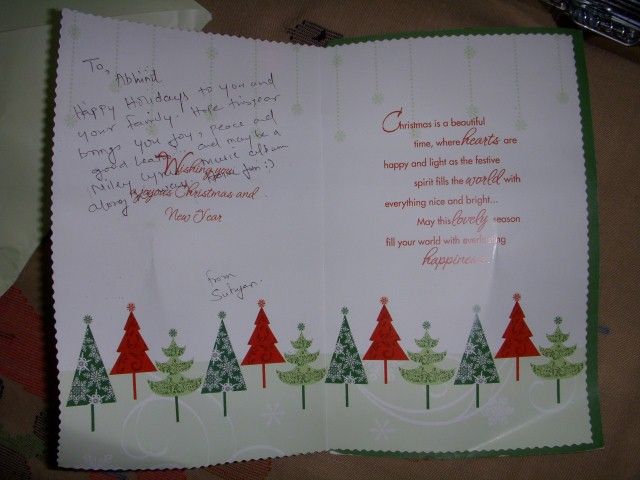 To,
Abhinit
Happy Holidays to you and
your family. Hope this year
brings you joy, peace and
good health and maybe a
Miley Cyrus music album
along
Wishing you
a joyous Christmas and
New Year
from
Sutyan.
Christmas is a beautiful
time, where hearts are
happy and light as the festive
spirit fills the world with
everything nice and bright...
May this lovely season
fill your world with everlasting
happiness.